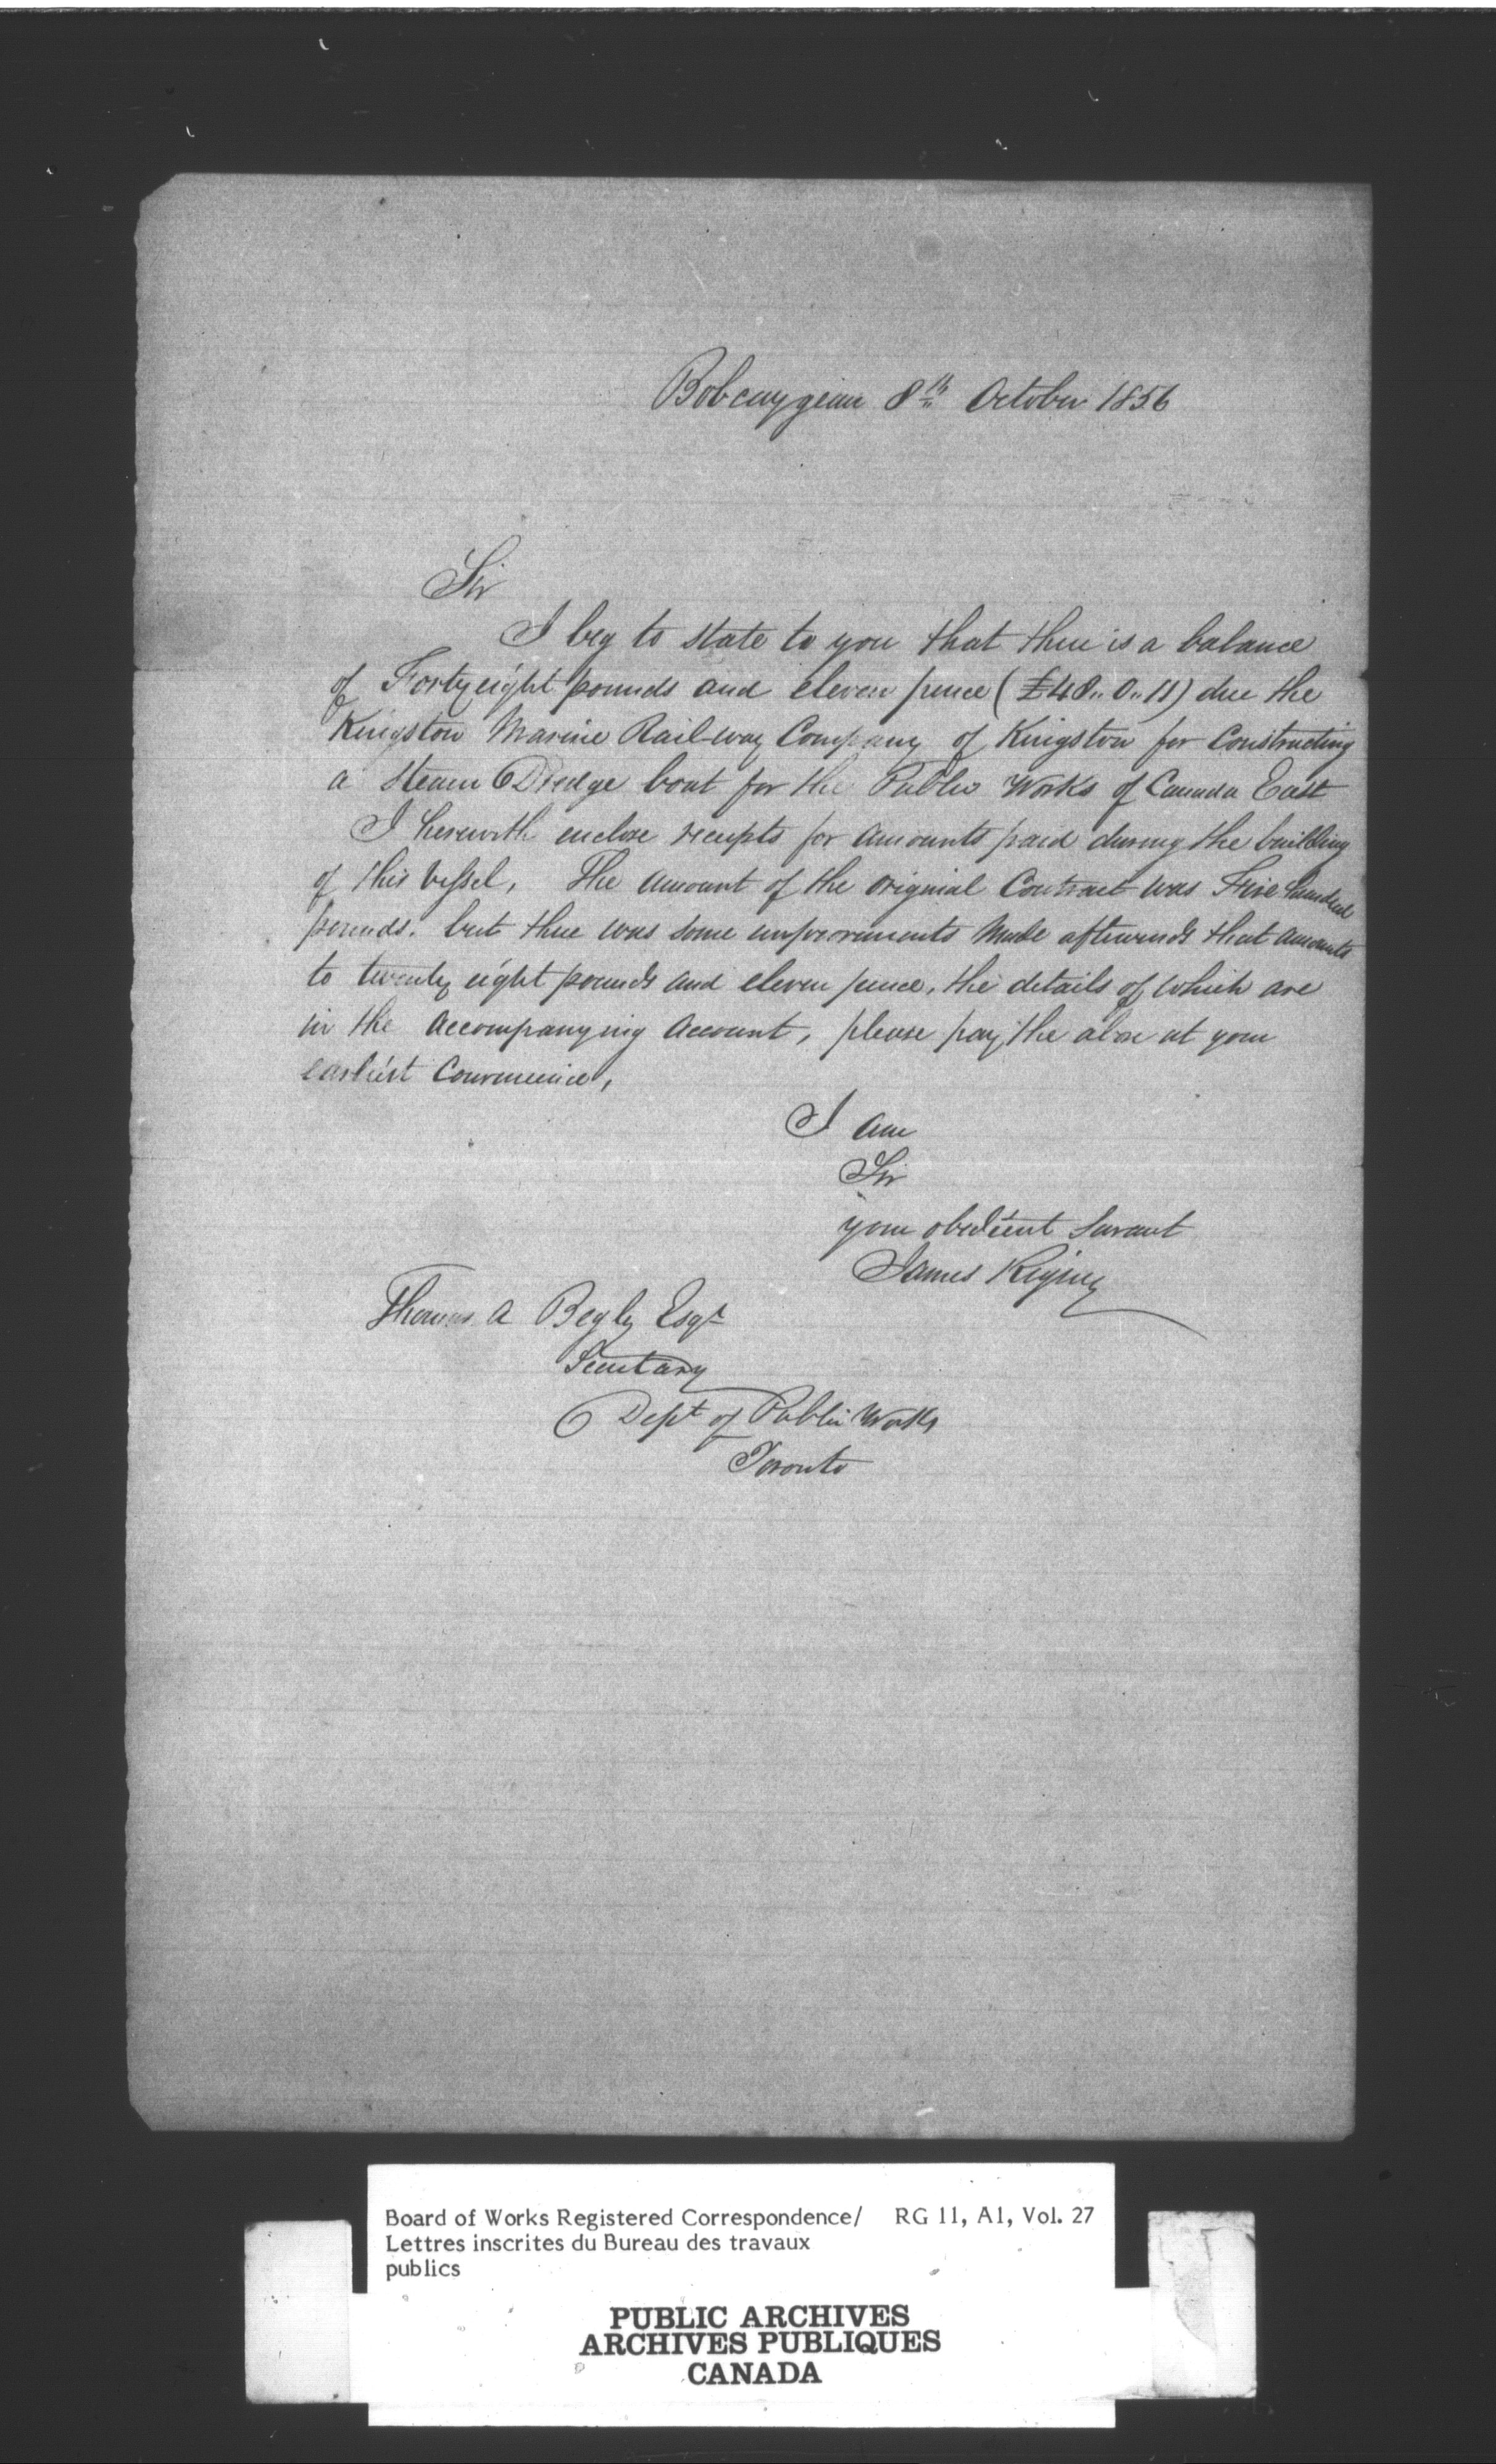 Bobcaygean 8th October 1856
Sir
I beg to state to you that there is a balance
of Forty eight pounds and eleven pence (£48.. 0.. 11) due the
Kingston Marine Rail-way Company of Kingston for Constructing
a steam Dredge boat for the Public Works of Canada East
I herewith enclose receipts for amounts paid during the building
of this vessel, The amount of the original Contract was Five hundred
pounds. but there was some improvements Made afterwards that amounts
to twenty eight pounds and eleven pence, the details of which are
in the accompanying account, please pay the above at your
earliest Convenience,
I am
Sir
your obedient Servant
James
Thomas A Begly Esqr
Secretary
Dept of Public Works
Toronto
Board of Works Registered Correspondence/ RG 11, A1, Vol. 27
Lettres inscrites du Bureau des travaux
publics
PUBLIC ARCHIVES
ARCHIVES PUBLIQUES
CANADA